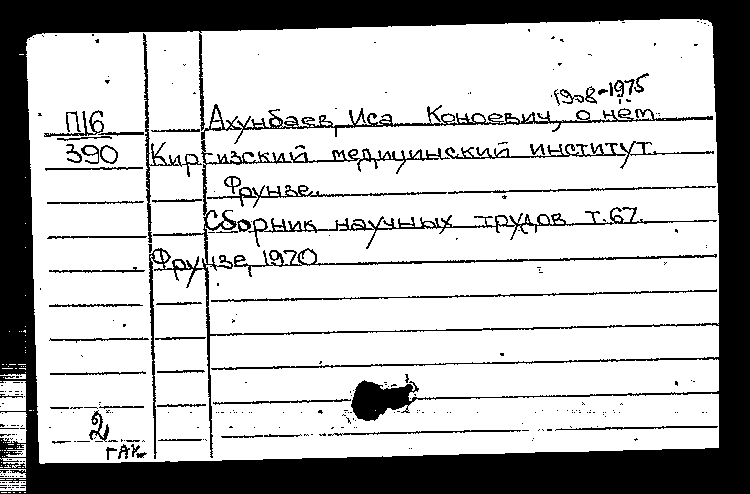 1908-1975
П16 Ахунбаев, Иса Коноевич, о нём.
390 Киргизский медицинский институт.
Фрунзе.
Сборник научных трудов т.67.
Фрунзе, 1970
2
ГАК